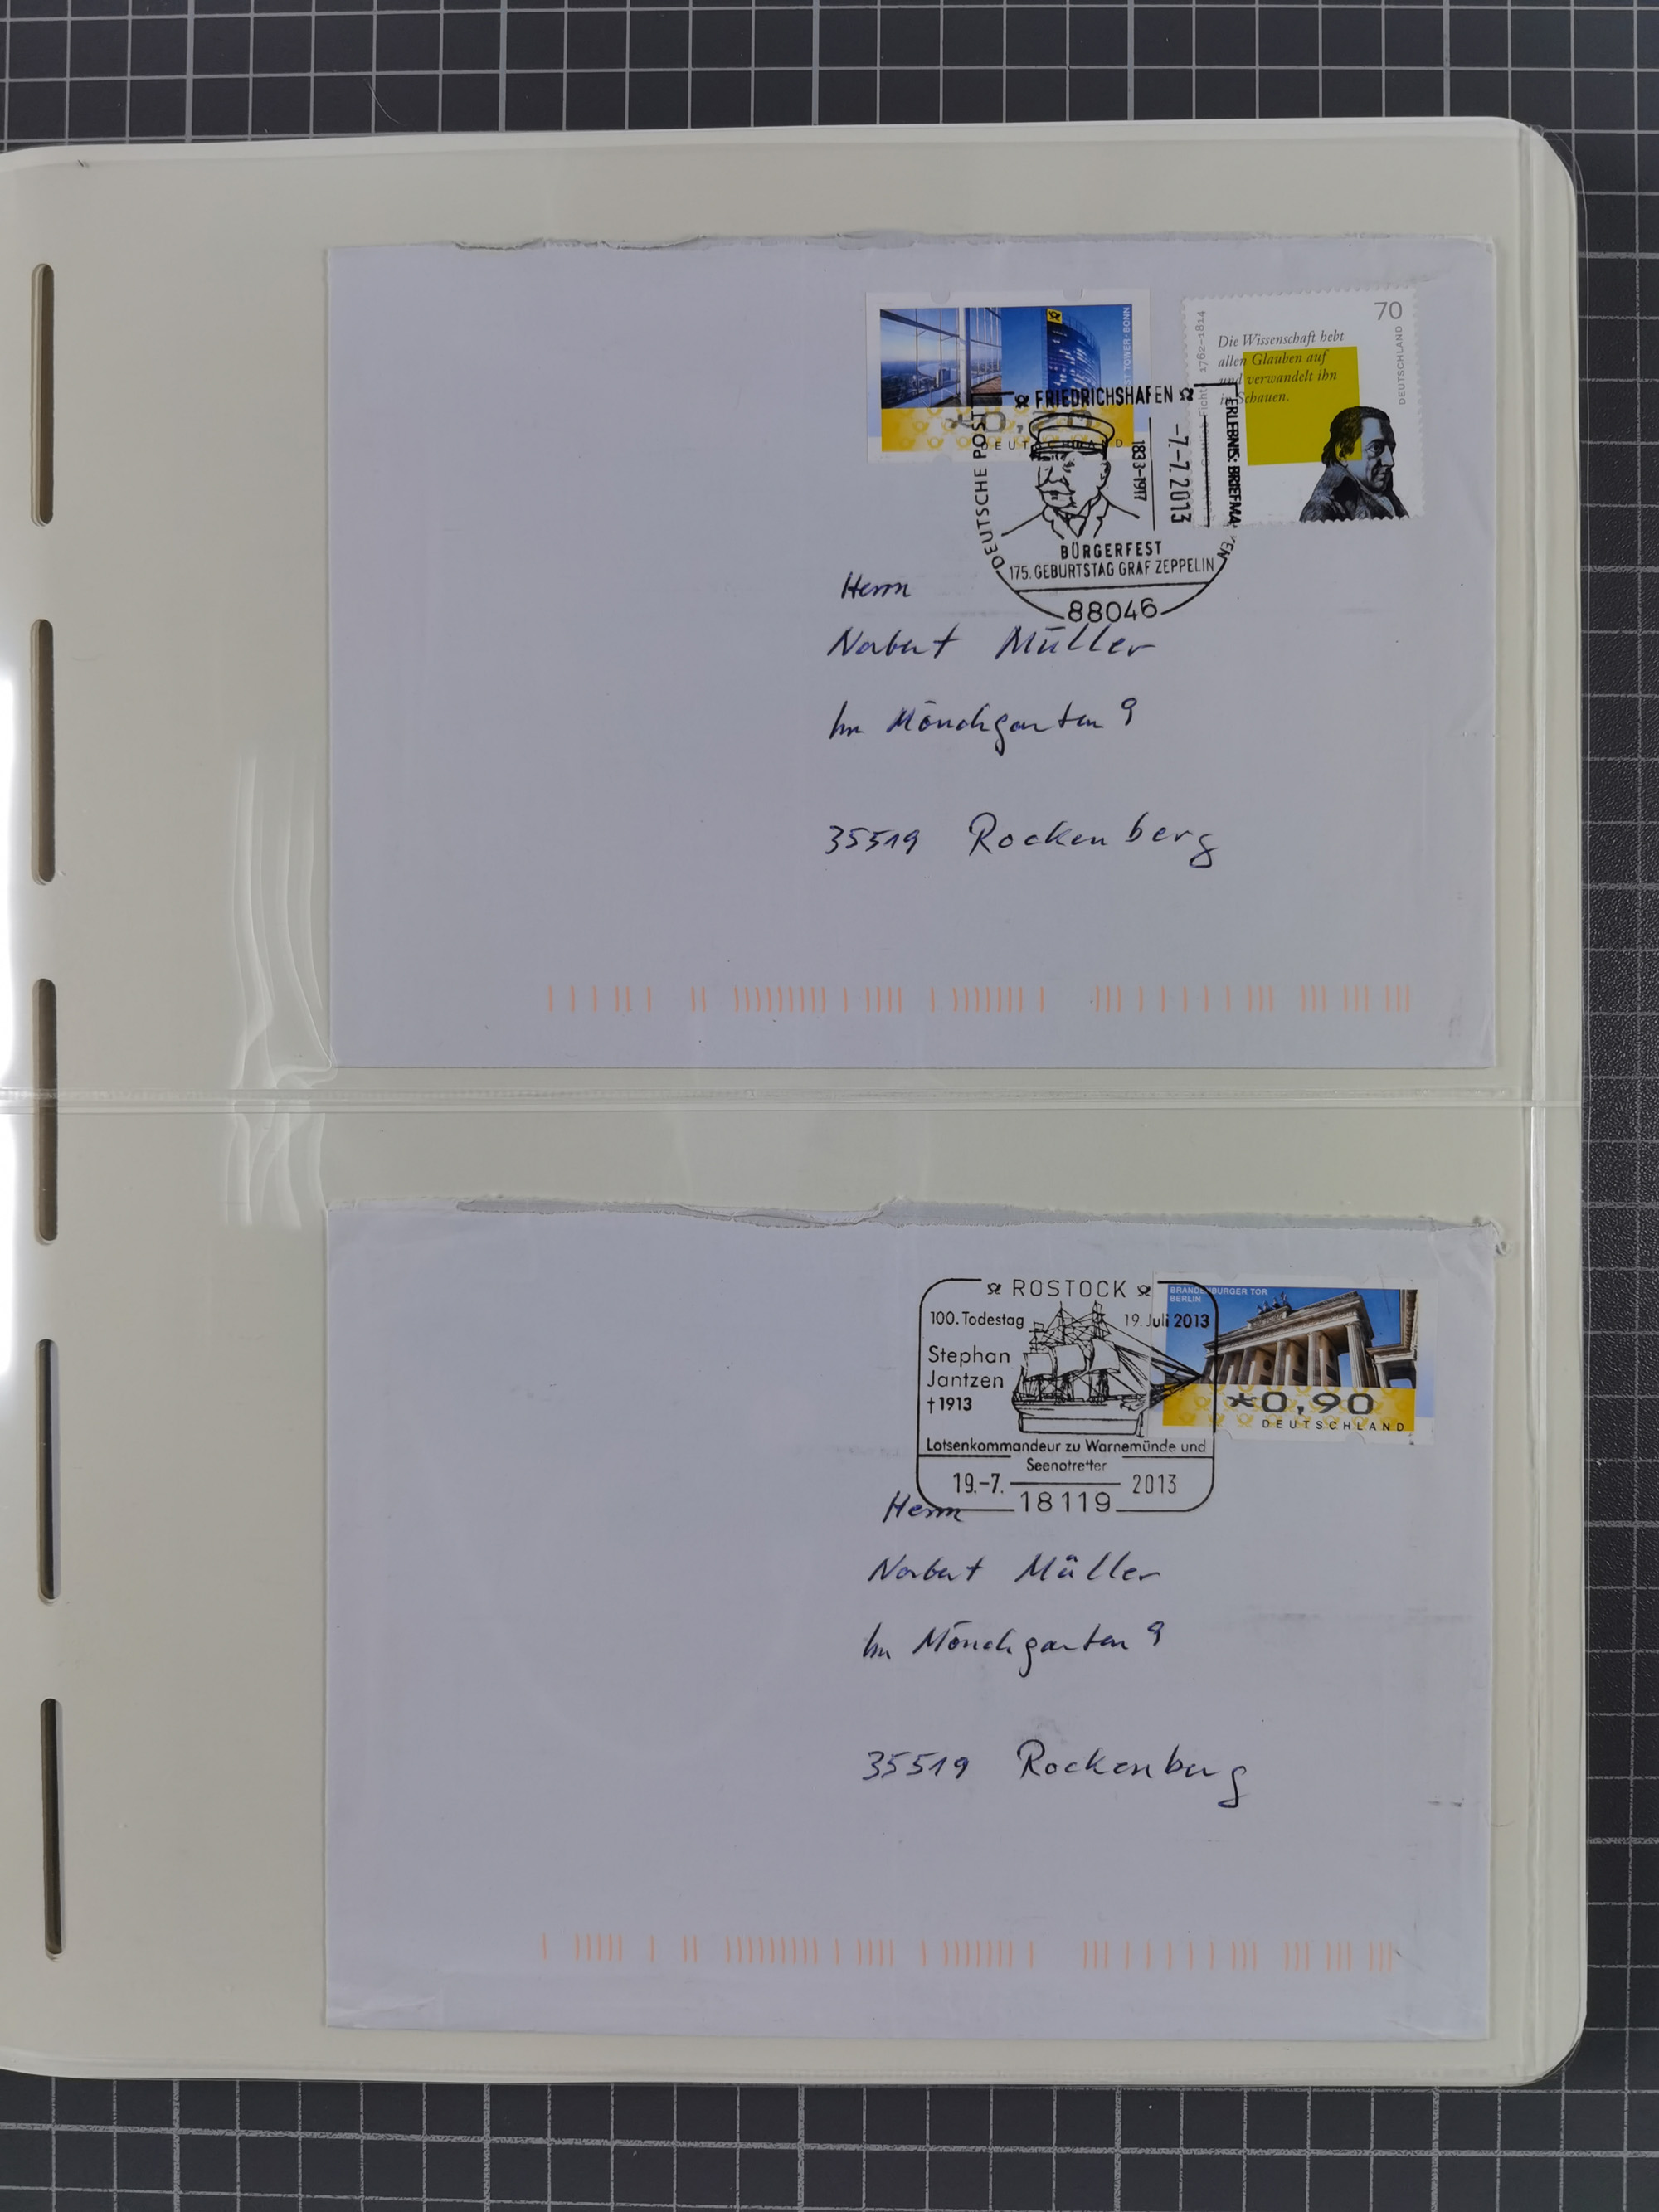 POST TOWER · BONN
*0,20
DEUTSCHLAND
1762–1814
Die Wissenschaft hebt
allen Glauben auf
und verwandelt ihn
in Schauen.
70
DEUTSCHLAND
FRIEDRICHSHAFEN
DEUTSCHE POST
ERLEBNIS: BRIEFMARKEN
1833–1917
–7.–7. 2013
BÜRGERFEST
175. GEBURTSTAG GRAF ZEPPELIN
88046
Herrn
Norbert Müller
Im Mönchgarten 9
35519 Rockenberg
ROSTOCK
100. Todestag 19. Juli 2013
Stephan
Jantzen
†1913
Lotsenkommandeur zu Warnemünde und
Seenotretter
19.–7. 2013
18119
BRANDENBURGER TOR
BERLIN
*0,90
DEUTSCHLAND
Herrn
Norbert Müller
Im Mönchgarten 9
35519 Rockenberg